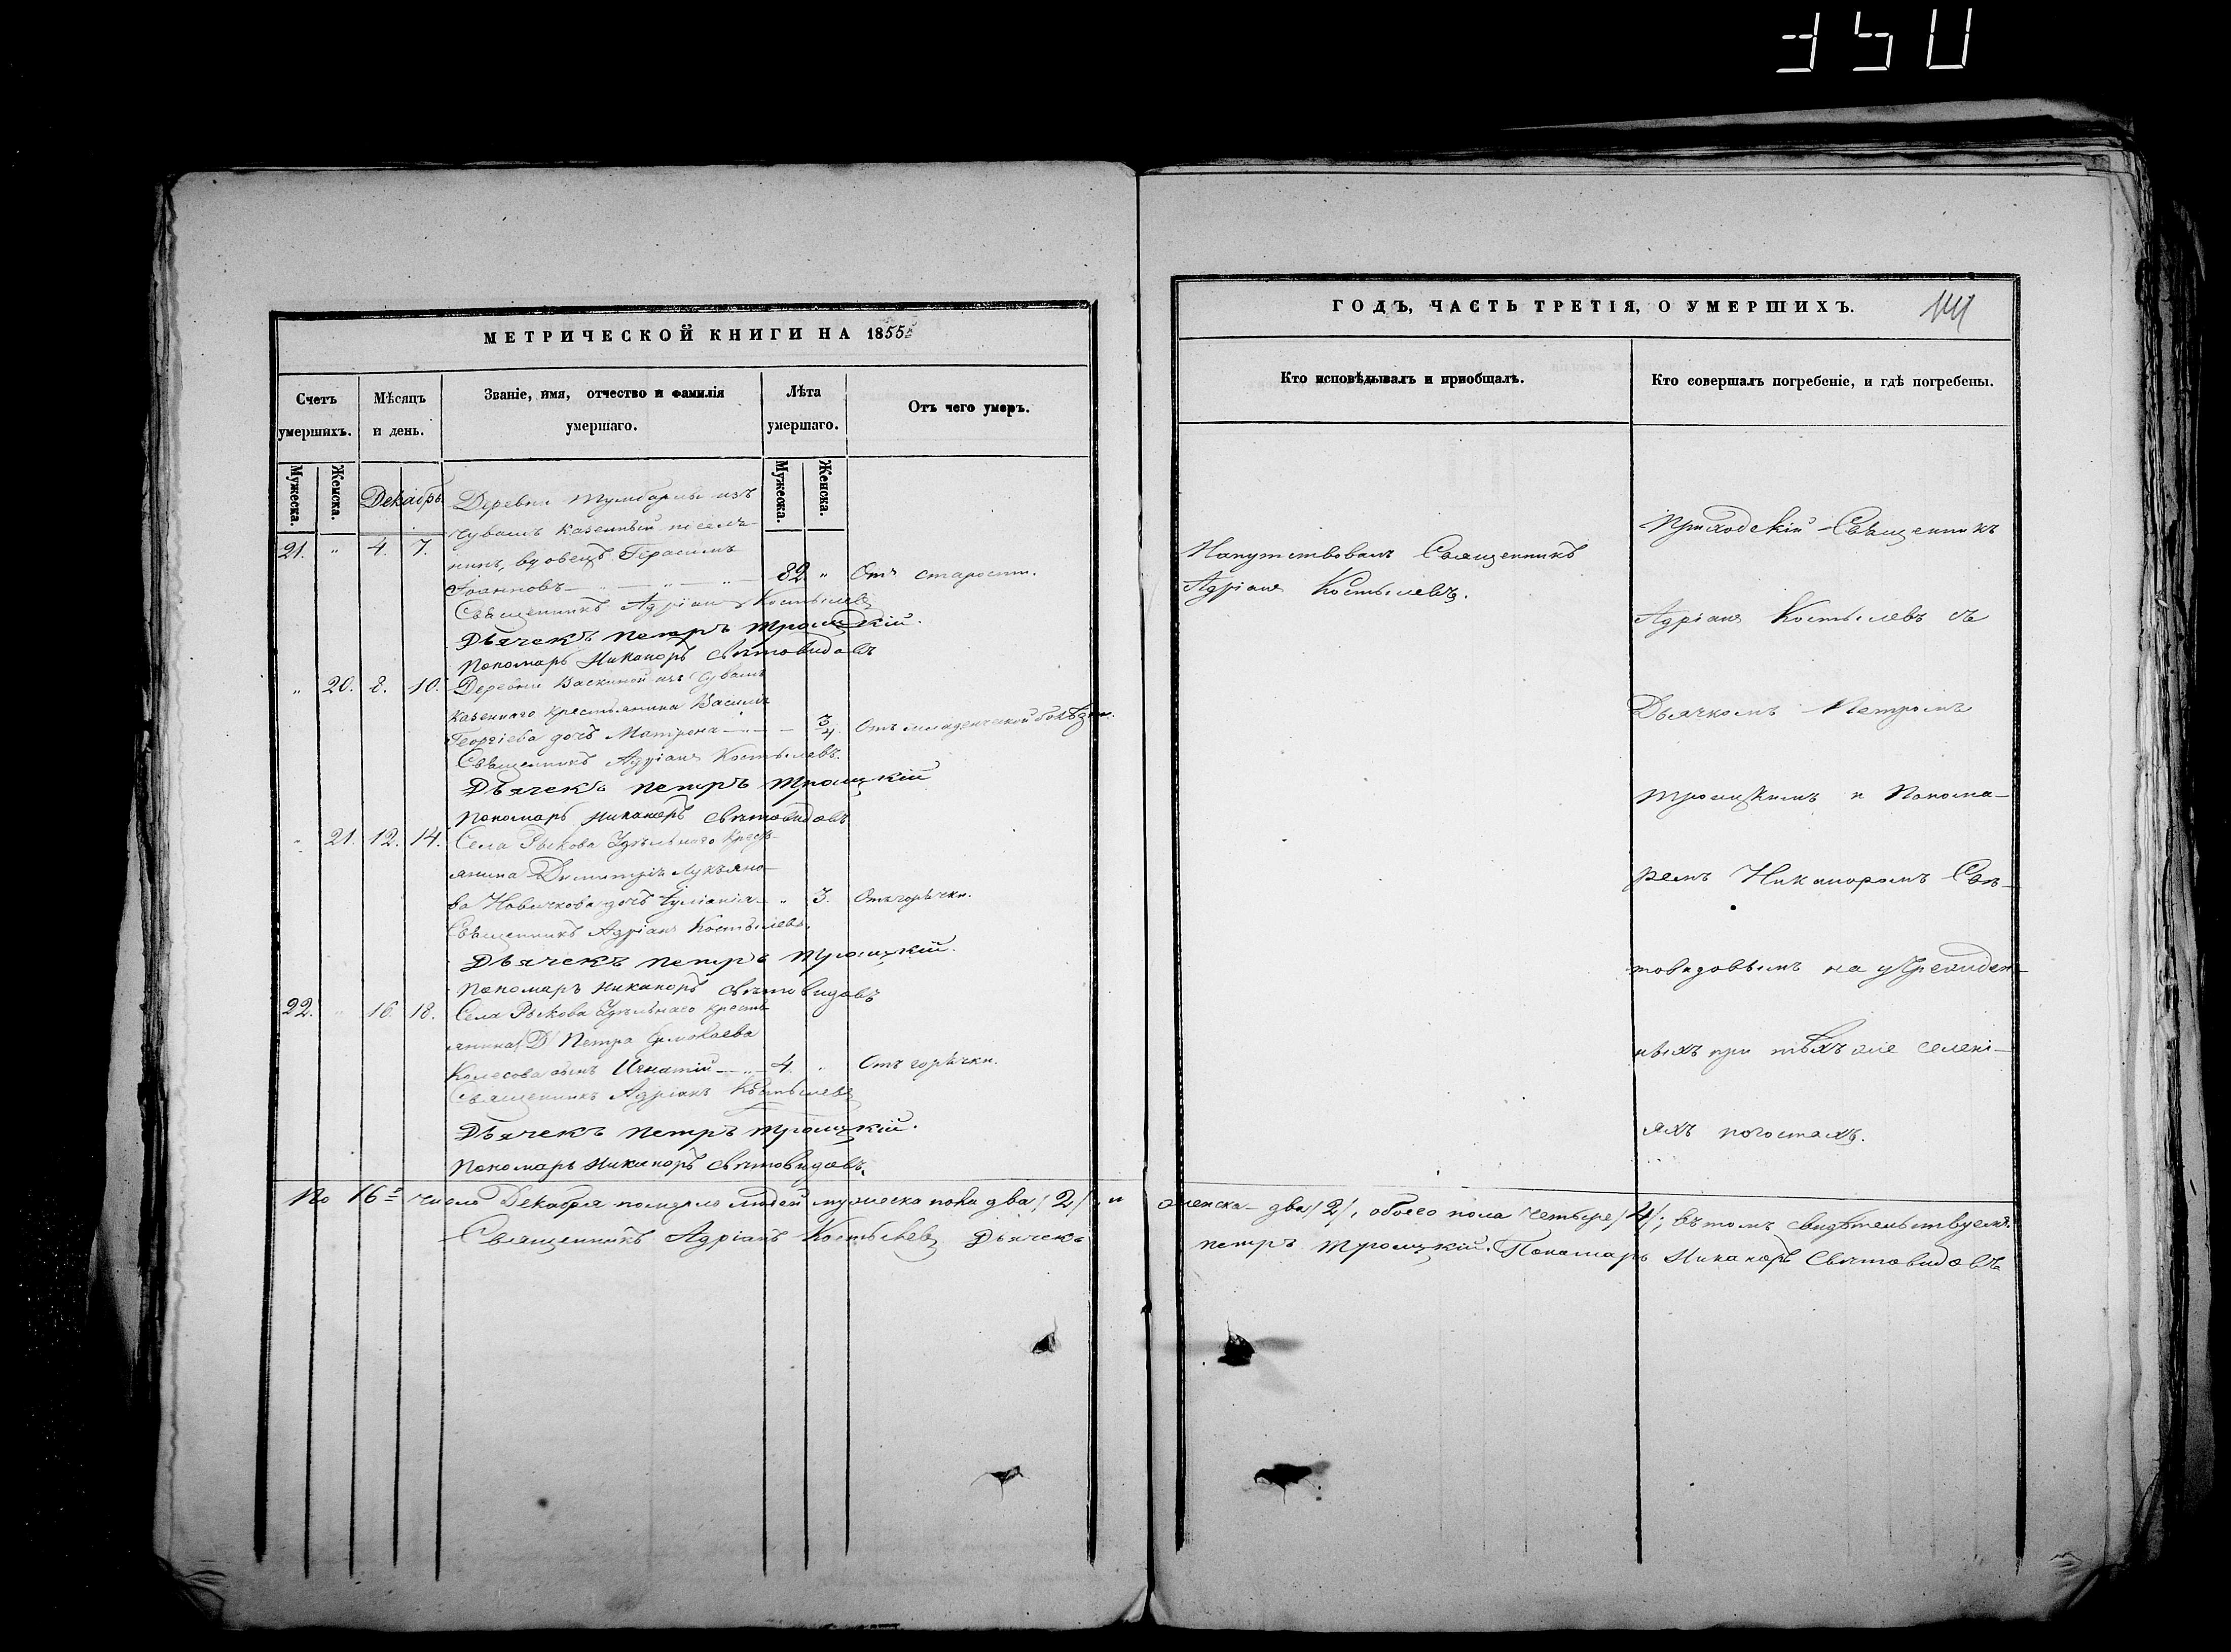 350
МЕТРИЧЕСКОЙ КНИГИ НА 1855й
Счетъ умершихъ.
Мѣсяцъ и день.
Званіе, имя, отчество и фамилія умершаго.
Лѣта умершаго.
Отъ чего умеръ.
Мужеска.
Женска.
Мужеска.
Женска.
Декабрь
Деревни Тумбарлы изъ
чувашъ казенный поселя-
21. " 4. 7. нинъ, вдовецъ Герасимъ
Іоанновъ 82 " Отъ старости.
Священникъ Адріанъ Костылевъ
Дьячекъ Петръ Троицкій.
Пономарь Никаноръ Свѣтовидовъ
" 20. 8. 10. Деревни Васкиной изъ Чувашъ
казеннаго крестьянина Василія
Георгіева дочь Матрена 3/4 Отъ младенческой болѣзни.
Священникъ Адріанъ Костылевъ.
Дьячекъ Петръ Троицкій
Пономарь Никаноръ Свѣтовидовъ
" 21. 12. 14. Села Рыкова Удѣльнаго крестъ-
янина Димитрія Лукьяно-
ва Новичкова дочь Іуліанія " 3. Отъ горячки.
Священникъ Адріанъ Костылевъ.
Дьячекъ Петръ Троицкій.
Пономарь Никаноръ Свѣтовидовъ
22. " 16. 18. Села Рыкова Удѣльнаго кресть-
янина Петра
Колесова сынъ Игнатій 4. " Отъ горячки.
Священникъ Адріанъ Костылевъ
Дьячекъ Петръ Троицкій.
Пономарь Никаноръ Свѣтовидовъ.
По 16е число Декабря померло людей мужеска пола два /2/, и
Священникъ Адріанъ Костылевъ Дьячекъ
ГОДЪ, ЧАСТЬ ТРЕТІЯ, О УМЕРШИХЪ.
141
Кто исповѣдывалъ и пріобщалъ.
Кто совершалъ погребеніе, и гдѣ погребены.
Напутствовалъ Священникъ
Адріанъ Костылевъ.
Приходскій Священникъ
Адріанъ Костылевъ съ
Дьячкомъ Петромъ
Троицкимъ и Понома-
ремъ Никаноромъ Свѣ-
товидовымъ на учрежден-
ныхъ при тѣхъ же селені-
яхъ погостахъ.
женска два /2/, обоего пола четыре /4/; въ томъ свидѣтельствуемъ.
Петръ Троицкій. Пономарь Никаноръ Свѣтовидовъ